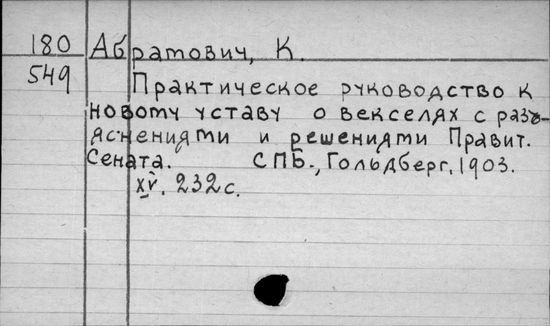 180 Абратович, К.
549 Практическое руководство к
новому уставу о векселях с разъ-
яснениями и решениями Правит.
Сената. СПБ., Гольдберг, 1903.
XV, 232 с.